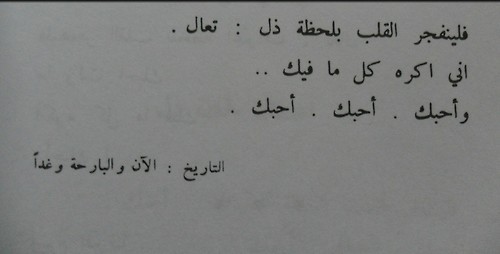 فلينفجر القلب بلحظة ذل : تعال .
اني اكره كل ما فيك ..
وأحبك . أحبك . أحبك .
التاريخ : الآن والبارحة وغداً